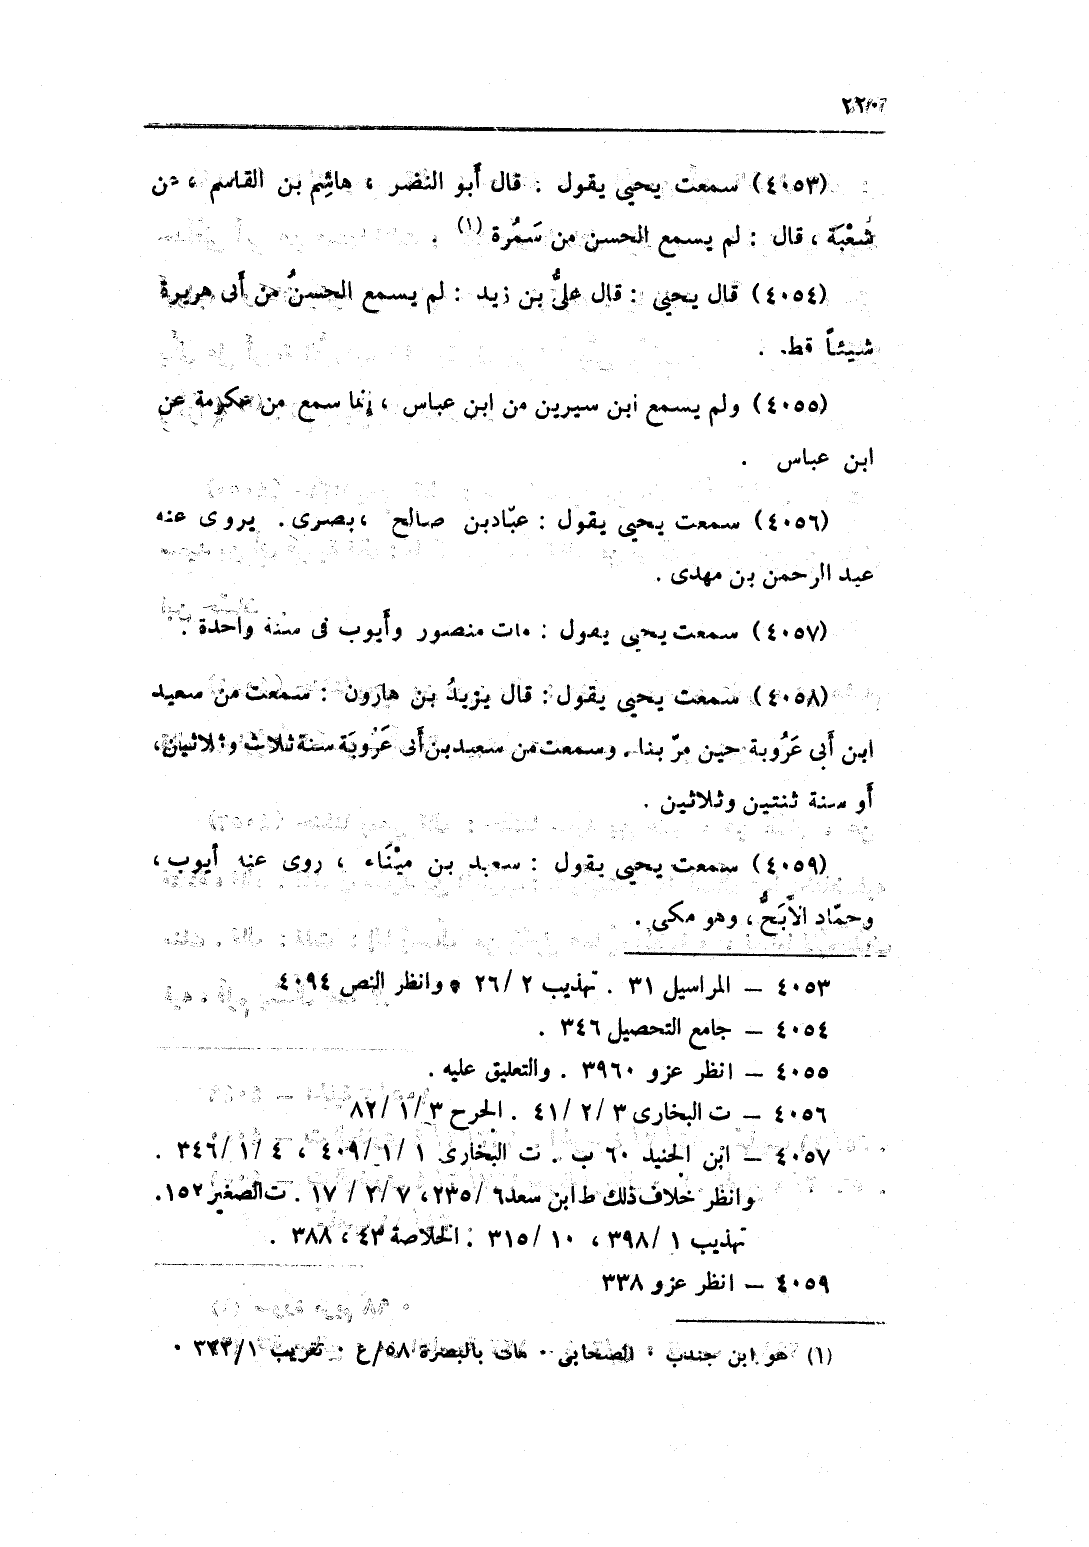 (٤٠٥٣) سمعت يحيى يقول : قال أَبو النضر ، هاشِم بن القاسم ، عن
شُعْبَة ، قال : لم يسمع الحسن من سَمُرة (١) .
(٤٠٥٤) قال يحيى : قال عليُّ بن زيد : لم يسمع الحسنُ من أَبى هريرة
شيئاً قط .
(٤٠٥٥) ولم يسمع ابن سيرين من ابن عباس ، إنما سمع من عكرمة عن
ابن عباس .
(٤٠٥٦) سمعت يحيى يقول : عبّاد بن صالح ، بصرى . يروى عنه
عبد الرحمن بن مهدى .
(٤٠٥٧) سمعت يحيى يقول : مات منصور وأَيوب فى سنة واحدة .
(٤٠٥٨) سمعت يحيى يقول : قال يزيدُ بن هارون : سمعت من سعيد
ابن أَبى عَرُوبة حين مرّ بنا . وسمعت من سعيد بن أَبى عَرُوبَة سنة ثلاث وثلاثين ،
أَو سنة ثنتين وثلاثين .
(٤٠٥٩) سمعت يحيى يقول : سعيد بن مِيْنَاء ، روى عنه أَيوب ،
وحمّاد الأَبَحُّ ، وهو مكى .
٤٠٥٣ – المراسيل ٣١ . تهذيب ٢ /٢٦ * وانظر النص ٤٠٩٤
٤٠٥٤ – جامع التحصيل ٣٤٦ .
٤٠٥٥ – انظر عزو ٣٩٦٠ . والتعليق عليه .
٤٠٥٦ – ت البخارى ٣ /٢ /٤١ . الجرح ٣ /١ /٨٢
٤٠٥٧ – ابن الجنيد ٦٠ ب . ت البخارى ١ /١ /٤٠٩ ، ٤ /١ /٣٤٦ .
وانظر خلاف ذلك ط ابن سعد ٦ /٢٣٥ ، ٧ /٢ / ١٧ . ت الصغير ١٥٢ .
تهذيب ١ /٣٩٨ ، ١٠ /٣١٥ . الخلاصة ٤٣ ، ٣٨٨ .
٤٠٥٩ – انظر عزو ٣٣٨
(١) هو ابن جندب . الصحابى . مات بالبصرة ٥٨ /ع . تقريب ١ /٣٣٣ .